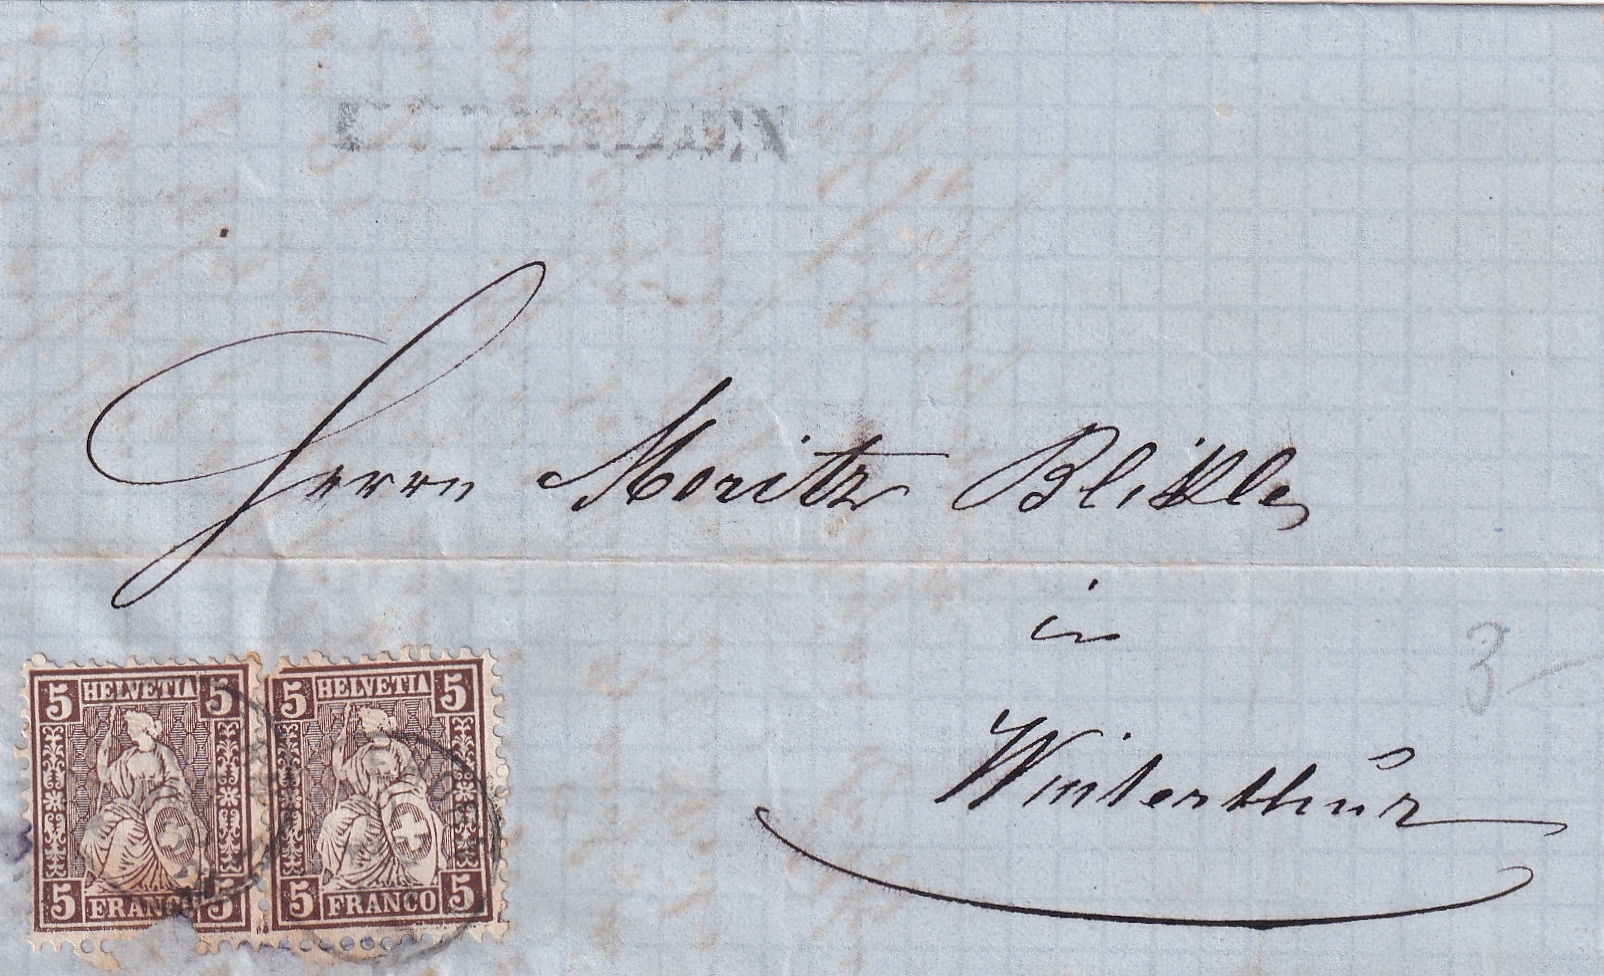 Herrn Moritz Blikle
in
Winterthur
3
5 HELVETIA 5
5 FRANCO 5
5 HELVETIA 5
5 FRANCO 5